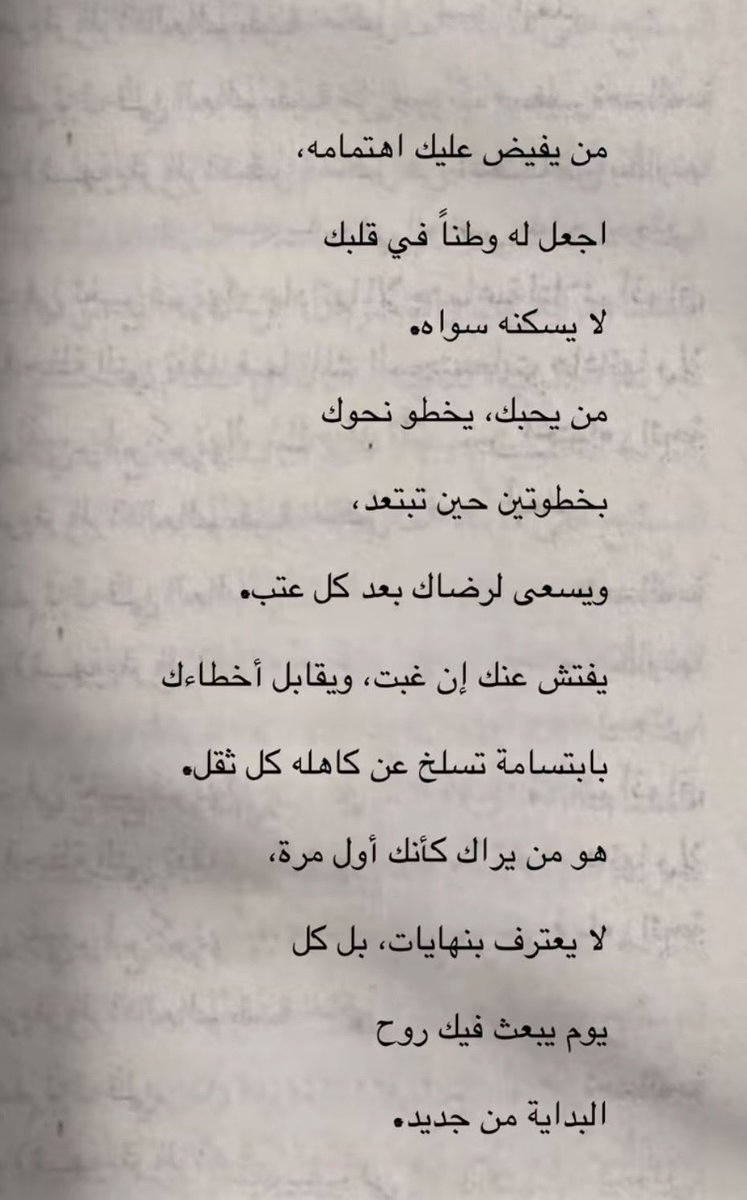 من يفيض عليك اهتمامه،
اجعل له وطناً في قلبك
لا يسكنه سواه.
من يحبك، يخطو نحوك
بخطوتين حين تبتعد،
ويسعى لرضاك بعد كل عتب.
يفتش عنك إن غبت، ويقابل أخطاءك
بابتسامة تسلخ عن كاهله كل ثقل.
هو من يراك كأنك أول مرة،
لا يعترف بنهايات، بل كل
يوم يبعث فيك روح
البداية من جديد.